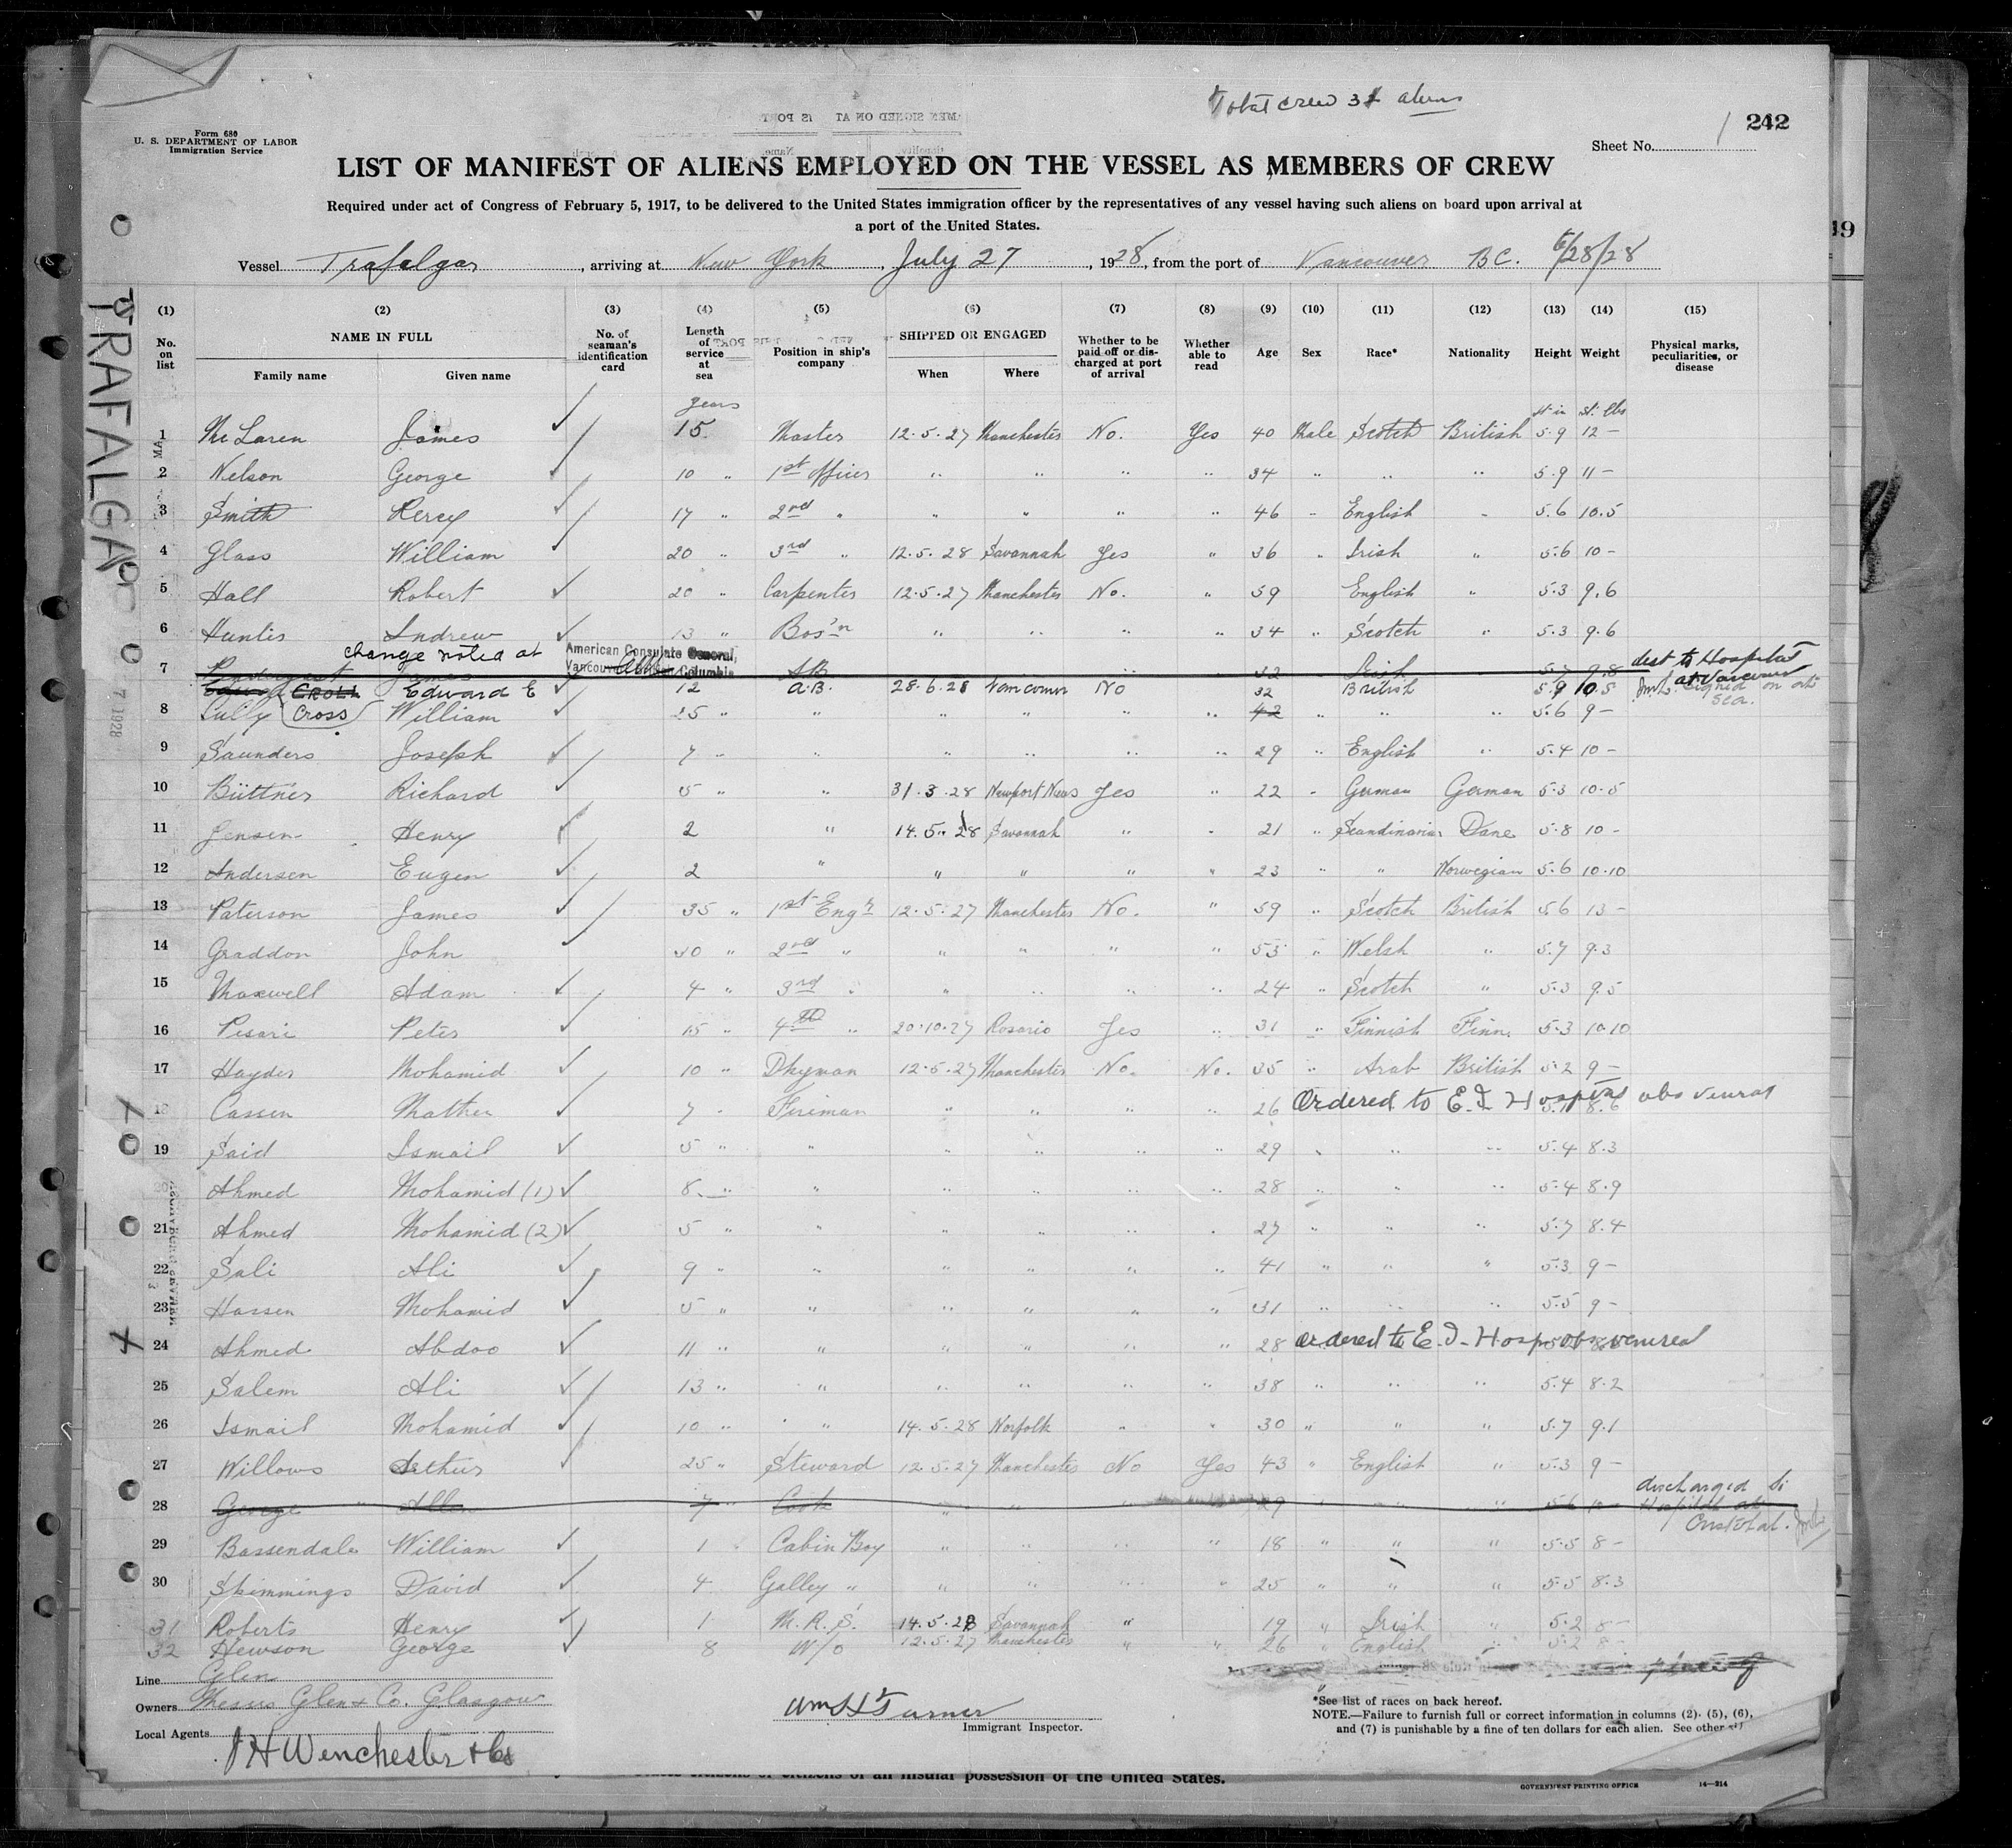 Total crew 31 aliens
Form 680
U. S. DEPARTMENT OF LABOR
Immigration Service
Sheet No. 1 242
LIST OF MANIFEST OF ALIENS EMPLOYED ON THE VESSEL AS MEMBERS OF CREW
Required under act of Congress of February 5, 1917, to be delivered to the United States immigration officer by the representatives of any vessel having such aliens on board upon arrival at
a port of the United States.
Vessel Trafalgar, arriving at New York, July 27, 1928, from the port of Vancouver BC. 6/28/28
TRAFALGAR
(1) (2) (3) (4) (5) (6) (7) (8) (9) (10) (11) (12) (13) (14) (15)
No. on list NAME IN FULL Family name Given name No. of seaman's identification card Length of service at sea Position in ship's company SHIPPED OR ENGAGED When Where Whether to be paid off or discharged at port of arrival Whether able to read Age Sex Race* Nationality Height Weight Physical marks, peculiarities, or disease
years ft in st. lbs
1 McLaren James 15 Master 12.5.27 Manchester No. Yes 40 Male Scotch British 5.9 12 –
2 Nelson George 10 " 1st Officer " " " " 34 " " " 5.9 11 –
3 Smith Percy 17 " 2nd " " " " " 46 " English " 5.6 10.5
4 Glass William 20 " 3rd " 12.5.28 Savannah Yes " 36 " Irish " 5.6 10 –
5 Hall Robert 20 " Carpenter 12.5.27 Manchester No. " 59 English " 5.3 9.6
6 Hunter Andrew 13 " Bos'n " " " " 34 " Scotch " 5.3 9.6
change noted at American Consulate General, Vancouver, Columbia
7 Pendergast James A.B. " 32 Irish 5.7 9.8 dest to Hospital at Vancouver
CROLL Edward E 12 A.B. 28.6.28 Vancouver No 32 British 5.9 10.5 signed on at sea.
(CROSS)
8 Tully William 25 " " " " " " 42 " " " 5.6 9 –
9 Saunders Joseph 7 " " " " " " 29 " English " 5.4 10 –
10 Büttner Richard 5 " " 31.3.28 Newport News Yes " 22 " German German 5.3 10.5
11 Jensen Henry 2 " 14.5.28 Savannah " " 21 " Scandinavian Dane 5.8 10 –
12 Andersen Eugen 2 " " " " " 23 " " Norwegian 5.6 10.10
13 Paterson James 35 " 1st Engr 12.5.27 Manchester No. " 59 " Scotch British 5.6 13 –
14 Graddon John 30 " 2nd " " " " " 53 " Welsh " 5.7 9.3
15 Maxwell Adam 4 " 3rd " " " " " 24 " Scotch " 5.3 9.5
16 Pesari Peter 15 " 4th " 20.10.27 Rosario Yes " 31 " Finnish Finn. 5.3 10.10
17 Hayder Mohamid 10 " Dkyman 12.5.27 Manchester No. No. 35 " Arab British 5.2 9 –
18 Cassen Mather 7 " Fireman " " " " 26 Ordered to E.I. Hospital obs venreal 5.1 8.6
19 Said Ismail 5 " " " " " " 29 " " " 5.4 8.3
Ahmed Mohamid (1) 8 " " " " " " 28 " " " 5.4 8.9
21 Ahmed Mohamid (2) 5 " " " " " " 27 " " " 5.7 8.4
22 Sali Ali 9 " " " " " " 41 " " " 5.3 9 –
23 Hassen Mohamid 5 " " " " " " 31 " " " 5.5 9 –
24 Ahmed Abdoo 11 " " " " " " 28 ordered to E.I. Hosp obs venereal
25 Salem Ali 13 " " " " " " 38 " " " 5.4 8.2
26 Ismail Mohamid 10 " " 14.5.28 Norfolk " " 30 " " " 5.7 9.1
27 Willows Arthur 25 " Steward 12.5.27 Manchester No Yes 43 " English " 5.3 9 –
28 George Allen 7 " Cook " " 29 " " 5.6 discharged to Hospital at Cristobal.
29 Bassendale William 1 " Cabin Boy " " " " 18 " " " 5.5 8 –
30 Skimmings David 4 Galley " " " " " 25 " " " 5.5 8.3
31 Roberts Henry 1 M.R.S. 14.5.28 Savannah " 19 " Irish " 5.2 8 –
32 Hewson George 8 W/o 12.5.27 Manchester " " 26 " English " 5.2 8 –
Line Glen
Owners Messrs Glen & Co. Glasgow
Local Agents J H Winchester & Co
Wm H Turner
Immigrant Inspector.
*See list of races on back hereof.
NOTE.—Failure to furnish full or correct information in columns (2), (5), (6),
and (7) is punishable by a fine of ten dollars for each alien. See other
citizens of an insular possession of the United States.
GOVERNMENT PRINTING OFFICE 14—214